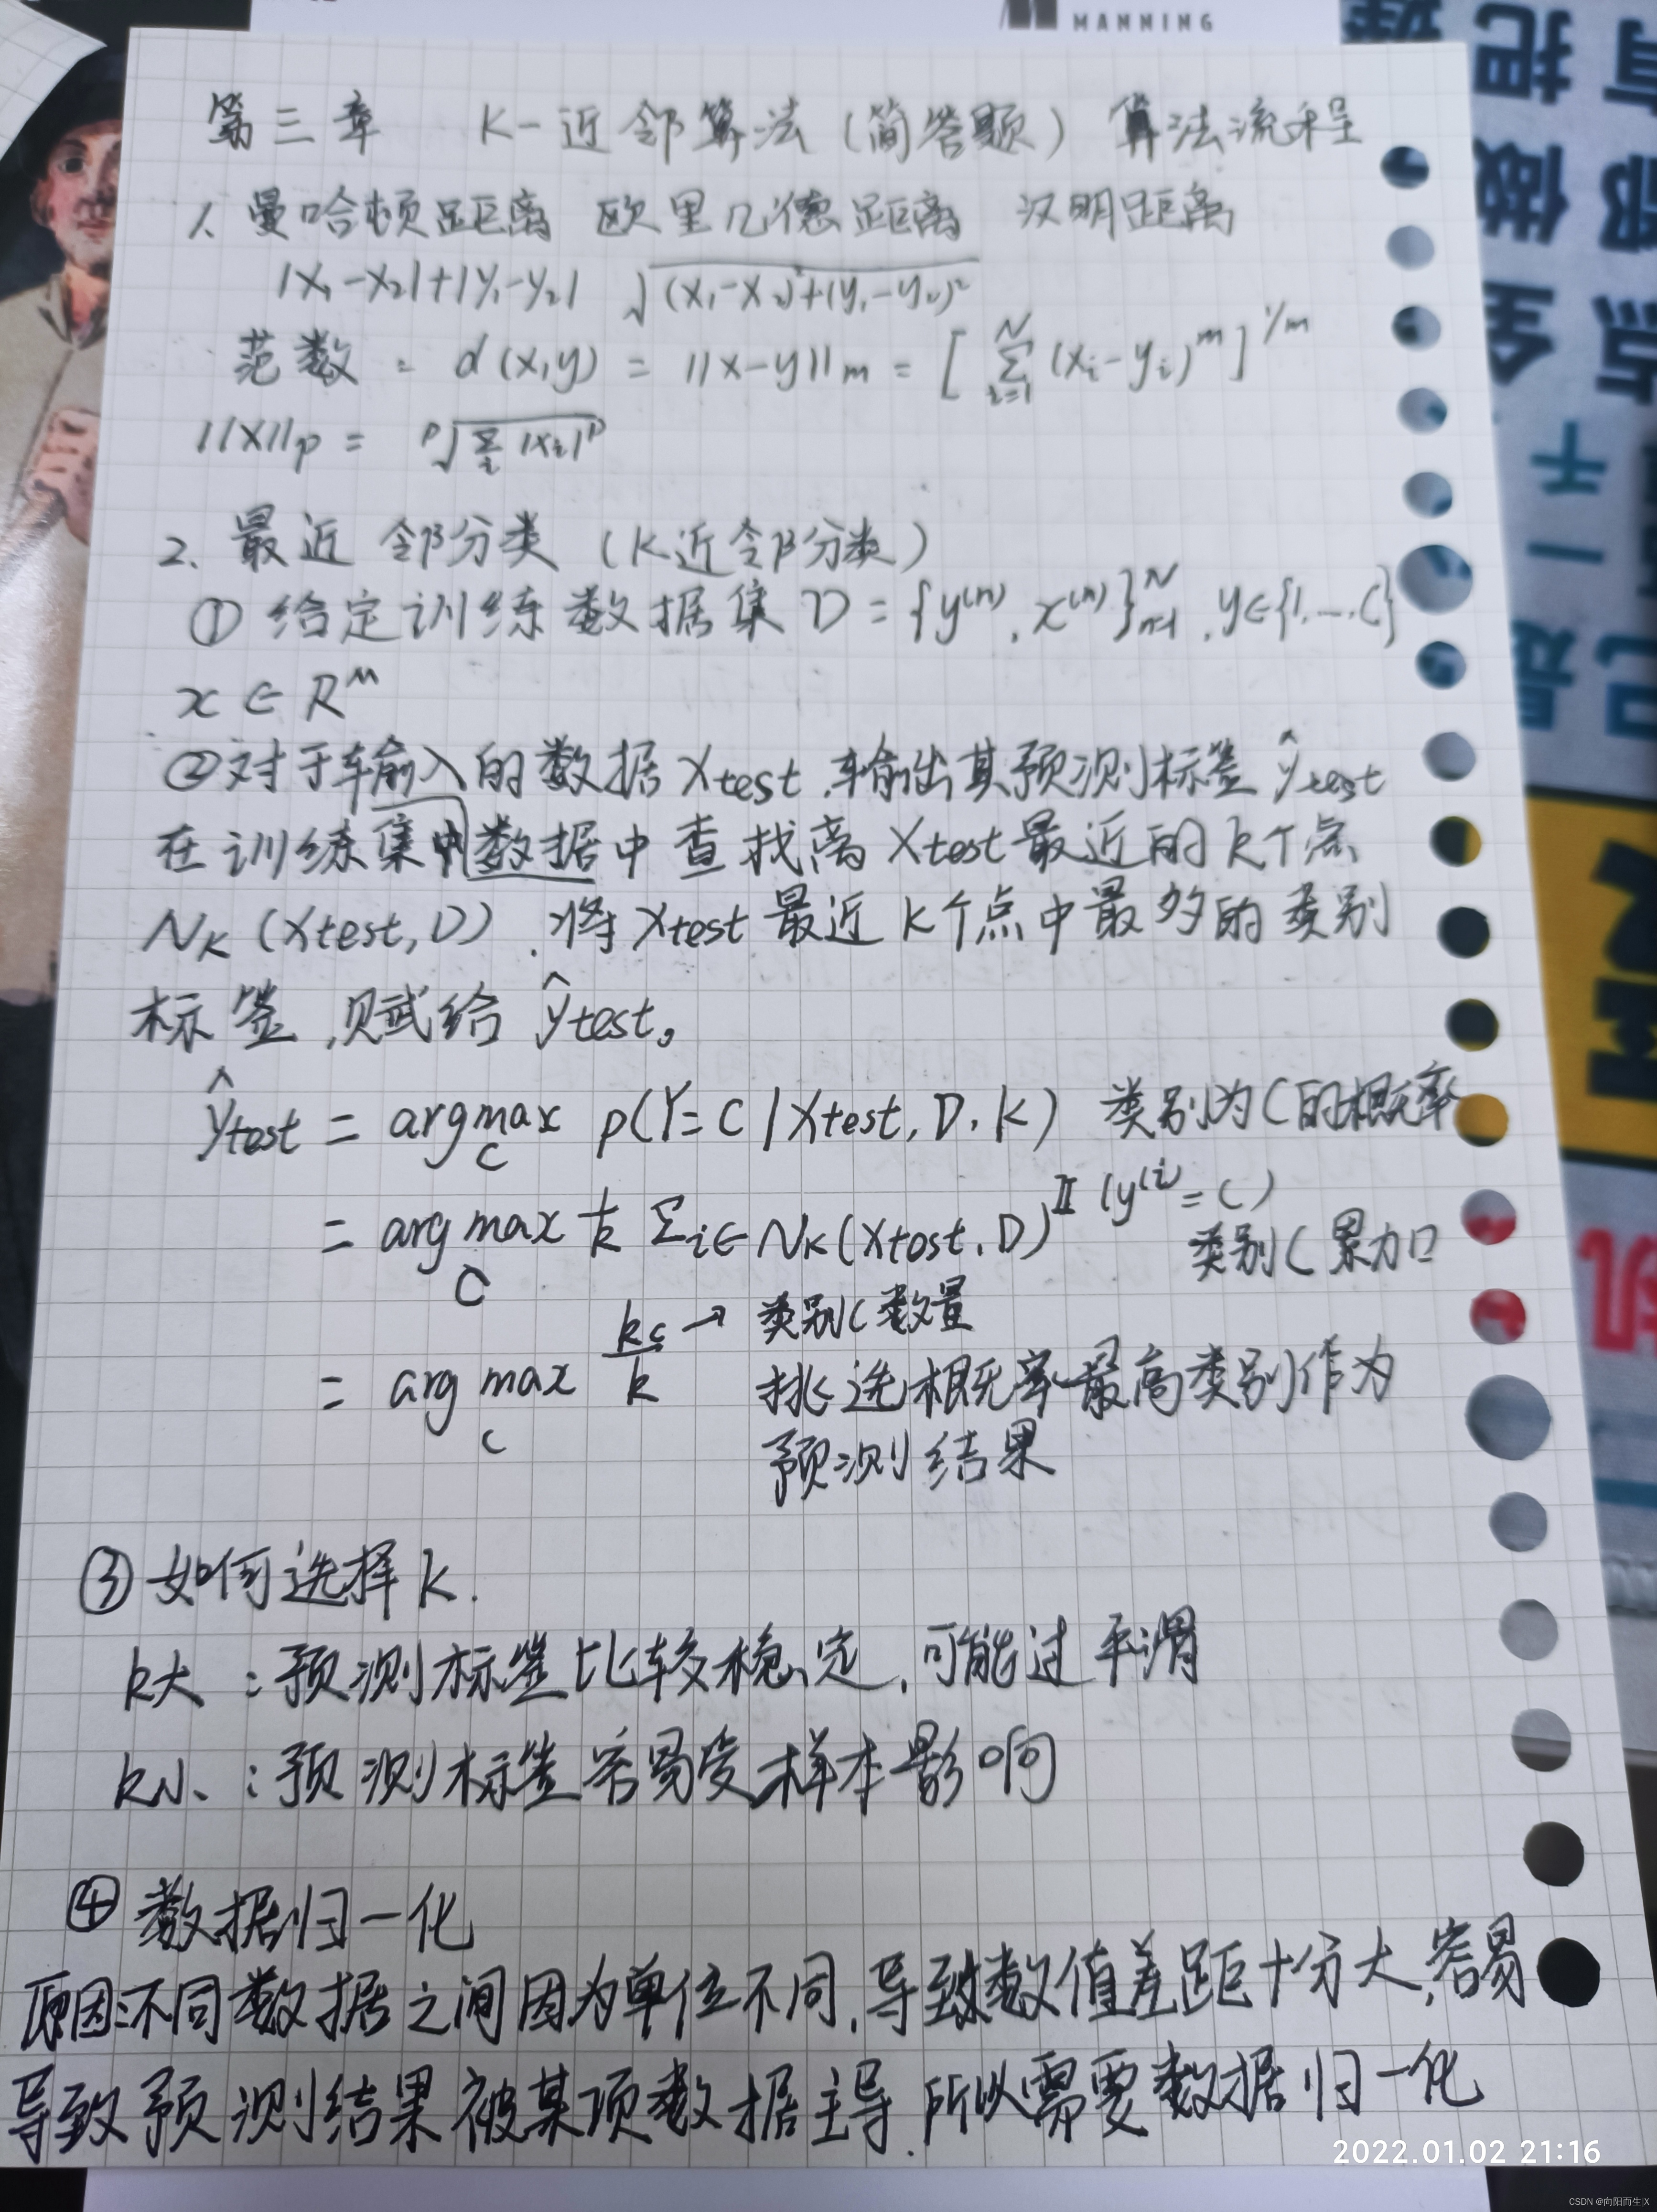 MANNING
第三章 K-近邻算法(简答题) 算法流程
1、曼哈顿距离 欧里几德距离 汉明距离
|x₁-x₂|+|y₁-y₂| √(x₁-x₂)²+(y₁-y₂)²
范数: d(x,y) = ||x-y||m = [ Σ_{i=1}^{N} (xᵢ-yᵢ)^m ]^{1/m}
||x||p = ᵖ√Σᵢ |xᵢ|^p
2、最近邻分类(K近邻分类)
① 给定训练数据集 D = {y⁽ⁿ⁾, x⁽ⁿ⁾}_{n=1}^{N}, y∈{1,…,C}
x ∈ R^M
②对于输入的数据 Xtest,输出其预测标签 ŷtest
在训练集中数据中查找离 Xtest 最近的 k个点
Nk (Xtest, D),将 Xtest 最近 k个点中最多的类别
标签,赋给 ŷtest。
ŷtest = argmax_c p(Y=C | Xtest, D, k) 类别为C的概率
= arg max_C 1/k Σ_{i∈Nk(Xtest, D)} 𝕀 (y⁽ⁱ⁾=C)
类别C累加
= arg max_c kc/k → 类别C数量
挑选概率最高类别作为
预测结果
③ 如何选择 k.
k大 : 预测标签比较稳定,可能过平滑
k小、: 预测标签容易受样本影响
④ 数据归一化
原因:不同数据之间因为单位不同,导致数值差距十分大,容易
导致预测结果被某项数据主导.所以需要数据归一化
2022.01.02 21:16
CSDN @向阳而生|X